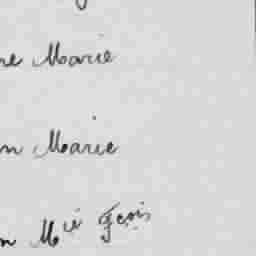 re Marie
n Marie
n M ie Fçois